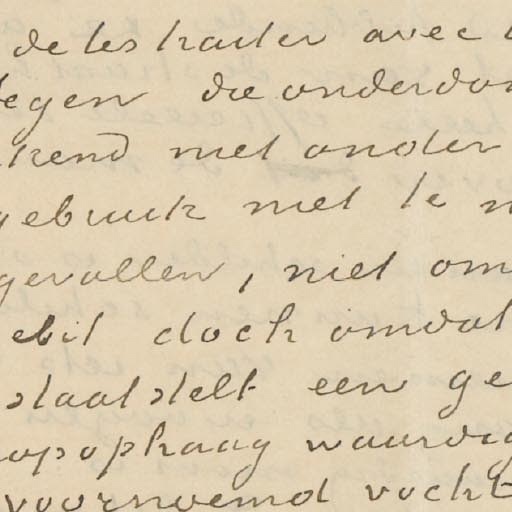 de les kader avec
tegen die onderdon
kend met onder
gebruik met te
gevallen, niet om
ebit doch omdat
staat stelt een ge
op ophaag waardig
voornoemd vocht